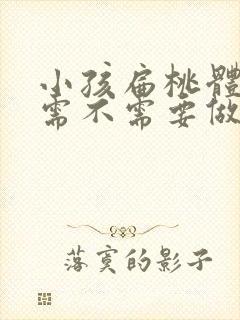 小孩扁桃體
需不需要做
落寞的影子